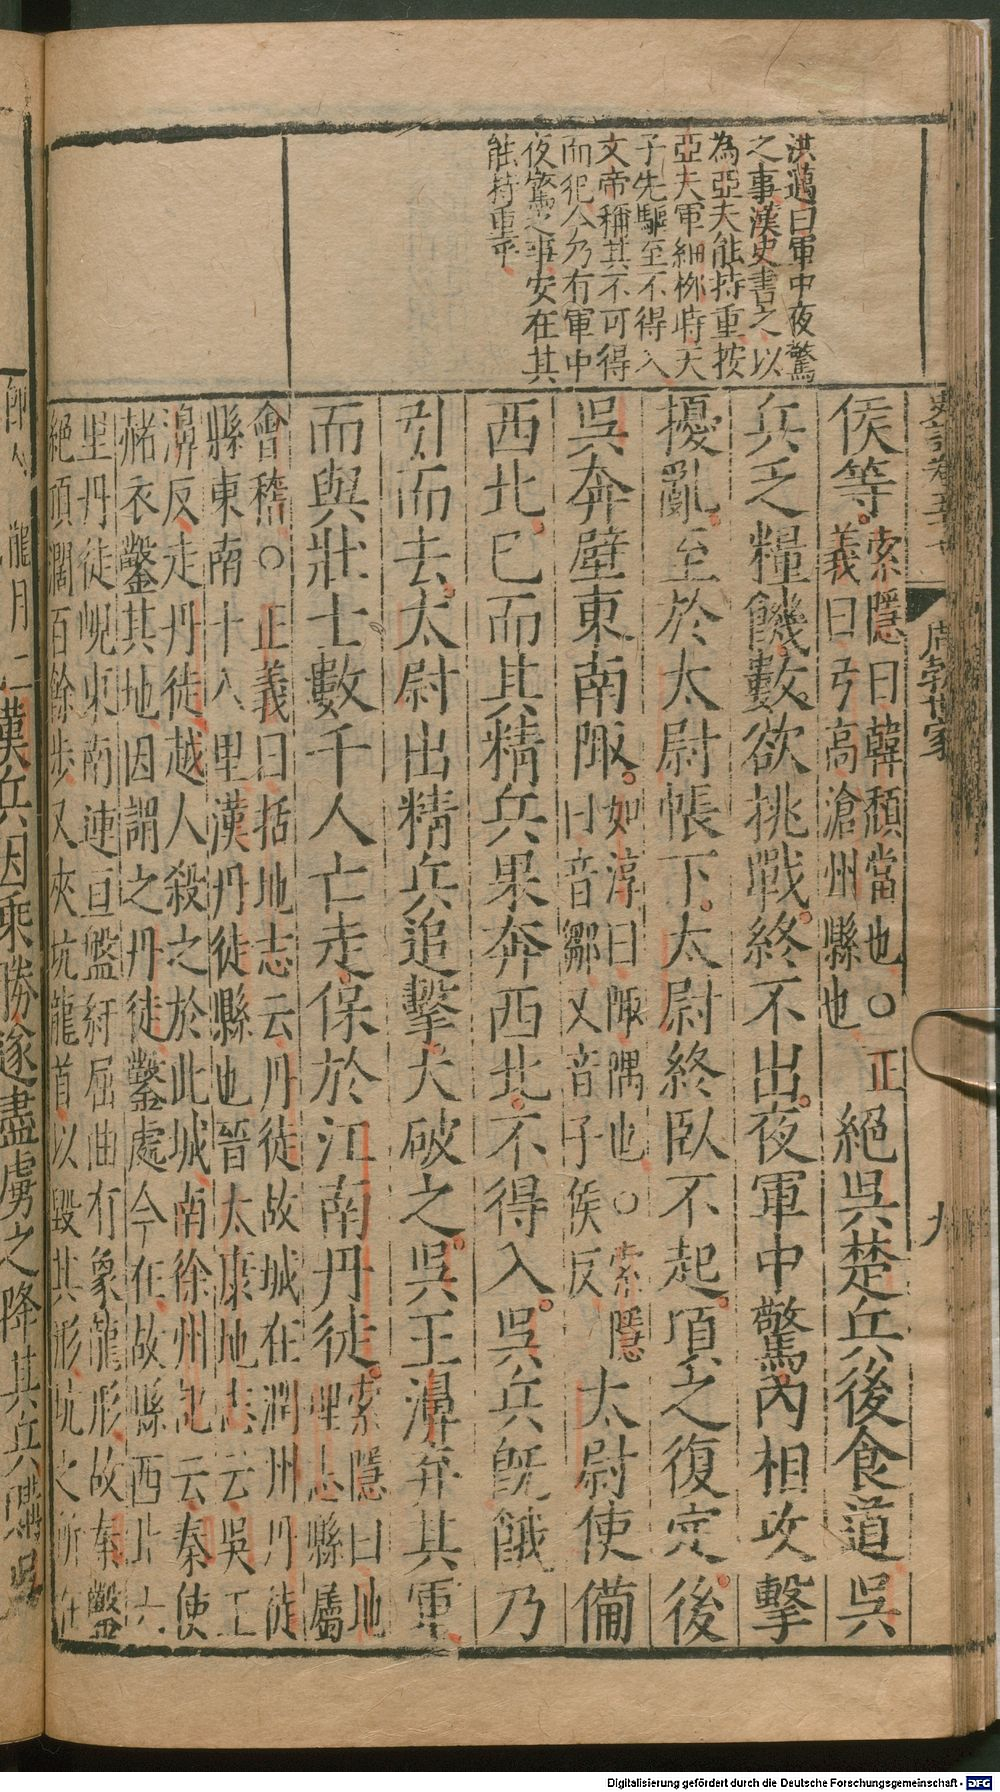 洪邁曰軍中夜驚
之事漢史書之以
為亞夫能持重按
亞夫軍細柳時天
子先驅至不得入
文帝稱其不可得
而犯今乃有軍中
夜驚之事安在其
能持重乎
史記卷五十七
周勃世家
九
侯等
索隱曰韓頹當也○正
義曰弓高滄州縣也
絕吳楚兵後食道吳
兵乏糧饑數欲挑戰終不出夜軍中驚內相攻擊
擾亂至於太尉帳下太尉終臥不起頃之復定後
吳奔壁東南陬
如淳曰陬隅也○索隱
曰音鄒又音子侯反
太尉使備
西北已而其精兵果奔西北不得入吳兵旣餓乃
引而去太尉出精兵追擊大破之吳王濞弃其軍
而與壯士數千人亡走保於江南丹徒
索隱曰地
理志縣屬
會稽○正義曰括地志云丹徒故城在潤州丹徒
縣東南十八里漢丹徒縣也晉太康地志云吳王
濞反走丹徒越人殺之於此城南徐州記云秦使
赭衣鑿其地因謂之丹徒鑿處今在故縣西北六
里丹徒峴東南連亘盤紆屈曲有象龍形故秦鑿
絕頂闊百餘步又夾坑龍首以毀其形坑之所在
卽今龍月二
漢兵因乘勝遂盡虜之降其兵購吳
Digitalisierung gefördert durch die Deutsche Forschungsgemeinschaft - DFG